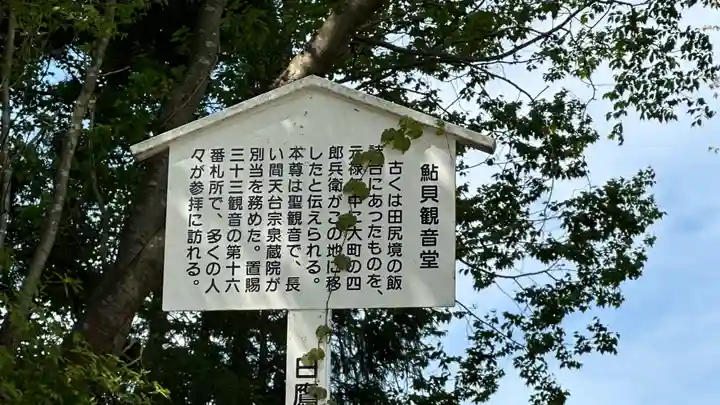 鮎貝観音堂
古くは田尻境の飯
詰台にあつたものを、
元禄年中に大町の四
郎兵衛がこの地に移
したと伝えられる。
本尊は聖観音で、長
い間天台宗泉蔵院が
別当を務めた。置賜
三十三観音の第十六
番札所で、多くの人
々が参拝に訪れる。
白鷹